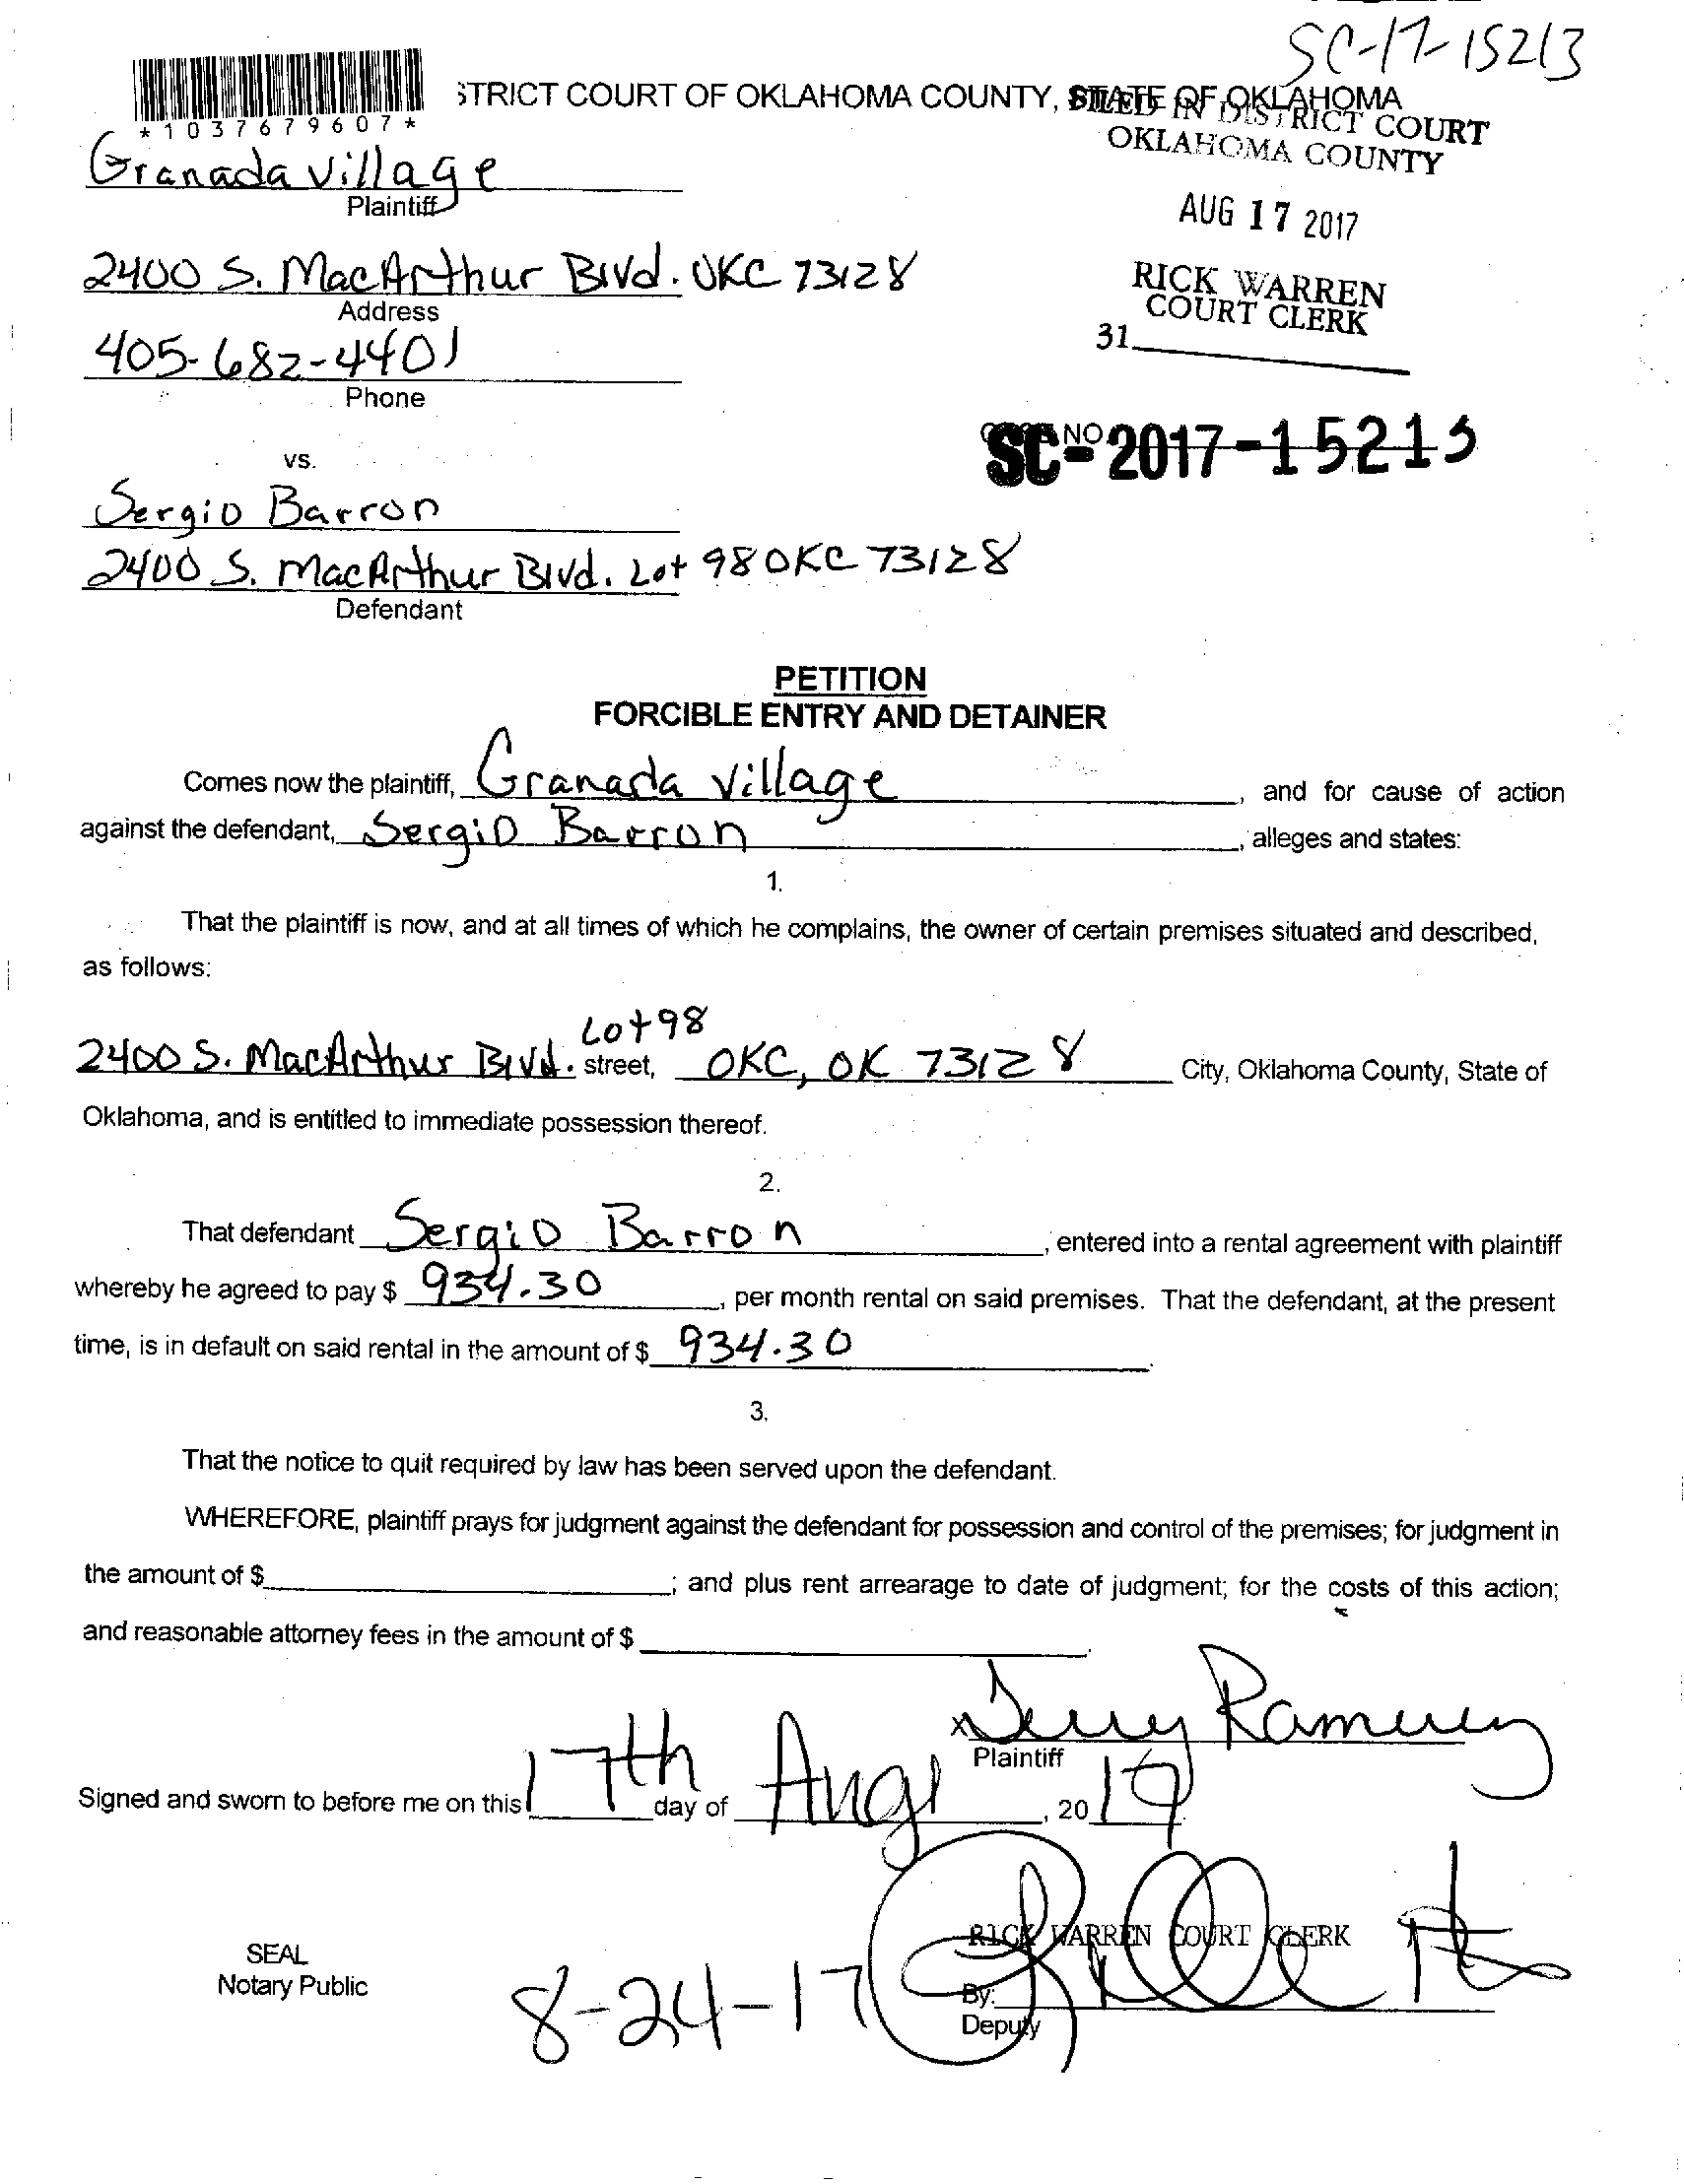 SC-17-15213
*1037679607*
STRICT COURT OF OKLAHOMA COUNTY, STATE OF OKLAHOMA
FILED IN DISTRICT COURT
OKLAHOMA COUNTY
Granada Village
Plaintiff
AUG 17 2017
2400 S. MacArthur Blvd. OKC 73128
Address
RICK WARREN
COURT CLERK
31
405-682-4401
Phone
NO.
SC-2017-15213
vs.
Sergio Barron
2400 S. MacArthur Blvd. Lot 98 OKC 73128
Defendant
PETITION
FORCIBLE ENTRY AND DETAINER
Comes now the plaintiff, Granada Village, and for cause of action
against the defendant, Sergio Barron, alleges and states:
1.
That the plaintiff is now, and at all times of which he complains, the owner of certain premises situated and described,
as follows:
Lot 98
2400 S. MacArthur Blvd. street, OKC, OK 73128 City, Oklahoma County, State of
Oklahoma, and is entitled to immediate possession thereof.
2.
That defendant Sergio Barron, entered into a rental agreement with plaintiff
whereby he agreed to pay $ 934.30, per month rental on said premises. That the defendant, at the present
time, is in default on said rental in the amount of $ 934.30.
3.
That the notice to quit required by law has been served upon the defendant.
WHEREFORE, plaintiff prays for judgment against the defendant for possession and control of the premises; for judgment in
the amount of $; and plus rent arrearage to date of judgment; for the costs of this action;
and reasonable attorney fees in the amount of $.
x
Plaintiff
Signed and sworn to before me on this 17th day of Aug, 20
RICK WARREN COURT CLERK
SEAL
Notary Public
8-24-17
By:
Deputy